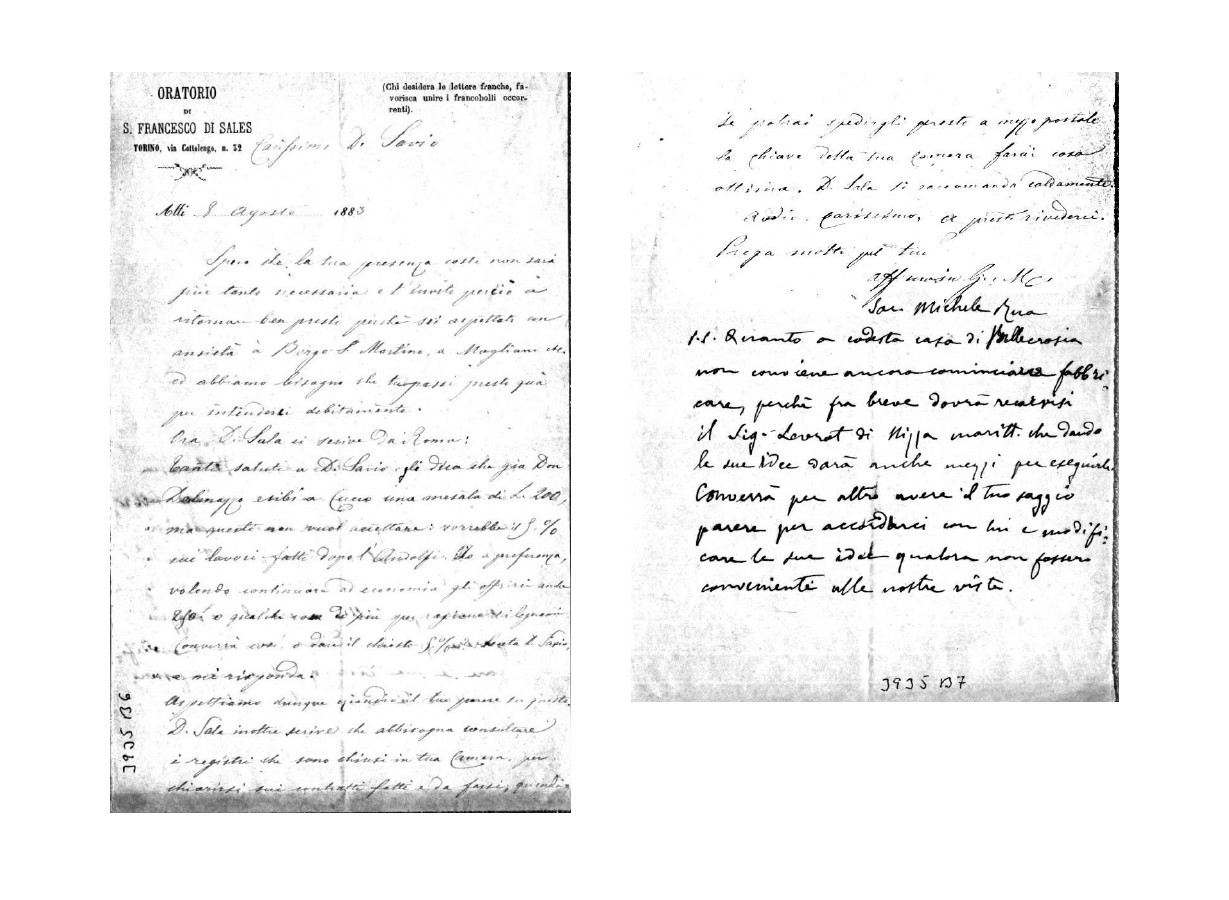 ORATORIO
DI
S. FRANCESCO DI SALES
TORINO, via Cottolengo, n. 32
(Chi desidera le lettere franche, fa-
vorisca unire i francobolli occor-
renti).
Carissimo D. Savio
Addì 8 Agosto 1883
Spero che la tua presenza costì non sarà
più tanto necessaria e t'invito perciò a
ritornar ben presto perchè sei aspettato con
ansietà a Borgo S. Martino, a Mogliano ec.
ed abbiamo bisogno che tu passi presto qua
per intenderci debitamente.
Ora D. Sala ci scrive da Roma:
Tanti saluti a D. Savio gli dica che già Don
Dalmazzo esibì a Cucco una mesata di L. 200,
ma questi non vuol accettare: vorrebbe il 5 %
sui lavori fatti dopo l'Andolfi. Io a preferenza,
volendo continuare ad economia gli offrirei anche
250 o qualche cosa di più per ragione di
Converrà così o dare il chiesto 5 % senta D. Savio,
e mi risponda.
Aspettiamo dunque quindi il tuo parere su questo.
D. Sala inoltre scrive che abbisogna consultare
i registri che sono chiusi in tua Camera, per
chiarirsi sui contratti fatti e da farsi, quindi
1935 B6
se potrai spedirgli presto a mezzo postale
la chiave della tua Camera farai cosa
ottima. D. Sala si raccomanda caldamente.
Addio, carissimo, a presto rivederci.
Prega molto pel tuo
aff in G. e M.
Sac. Michele Rua
P.S. Quanto a codesta casa di Vallecrosia
non conviene ancora cominciare fabbri
care, perchè fra breve dovrà recarvisi
il Sig. Levrot di Nizza maritt. che dando
le sue idee darà anche mezzi per eseguirle.
Converrà per altro avere il tuo saggio
parere per accordarci con lui e modifi:
care le sue idee qualora non fossero
convenienti alle nostre viste.
1935 B7